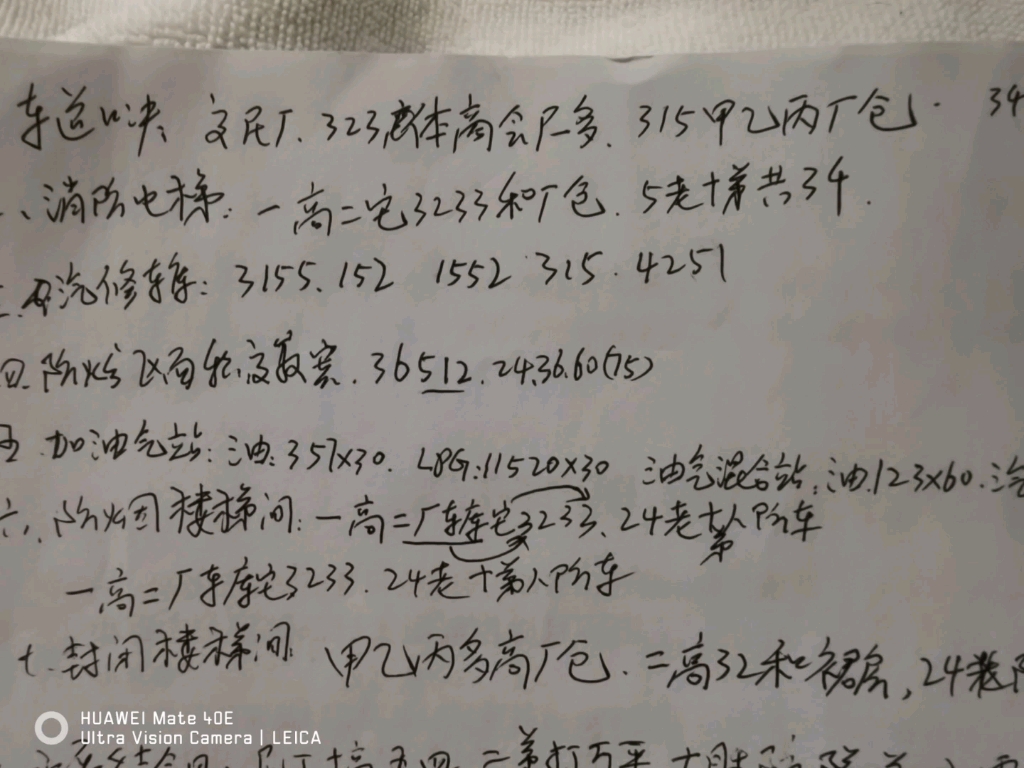 车道口决: 文民厂、323体高会尸多、315甲乙丙丁仓. 34
、消防电梯: 一高二宅3233和厂仓、5老十第共34.
汽修车库: 3155、152 1552 315、4251
四. 防火分区面积高数宽、36512、24、36、60(75)
五 加油气站: 油: 357×30、LPG: 11520×30 油气混合站: 油: 123×60、
六、防烟楼梯间: 一高二厂车库宅3233、24老十第人防车
一高二厂车库宅3233、24老十第人防车
七. 封闭楼梯间 甲乙丙多高厂仓、二高32和裙房, 24老
HUAWEI Mate 40E
Ultra Vision Camera | LEICA